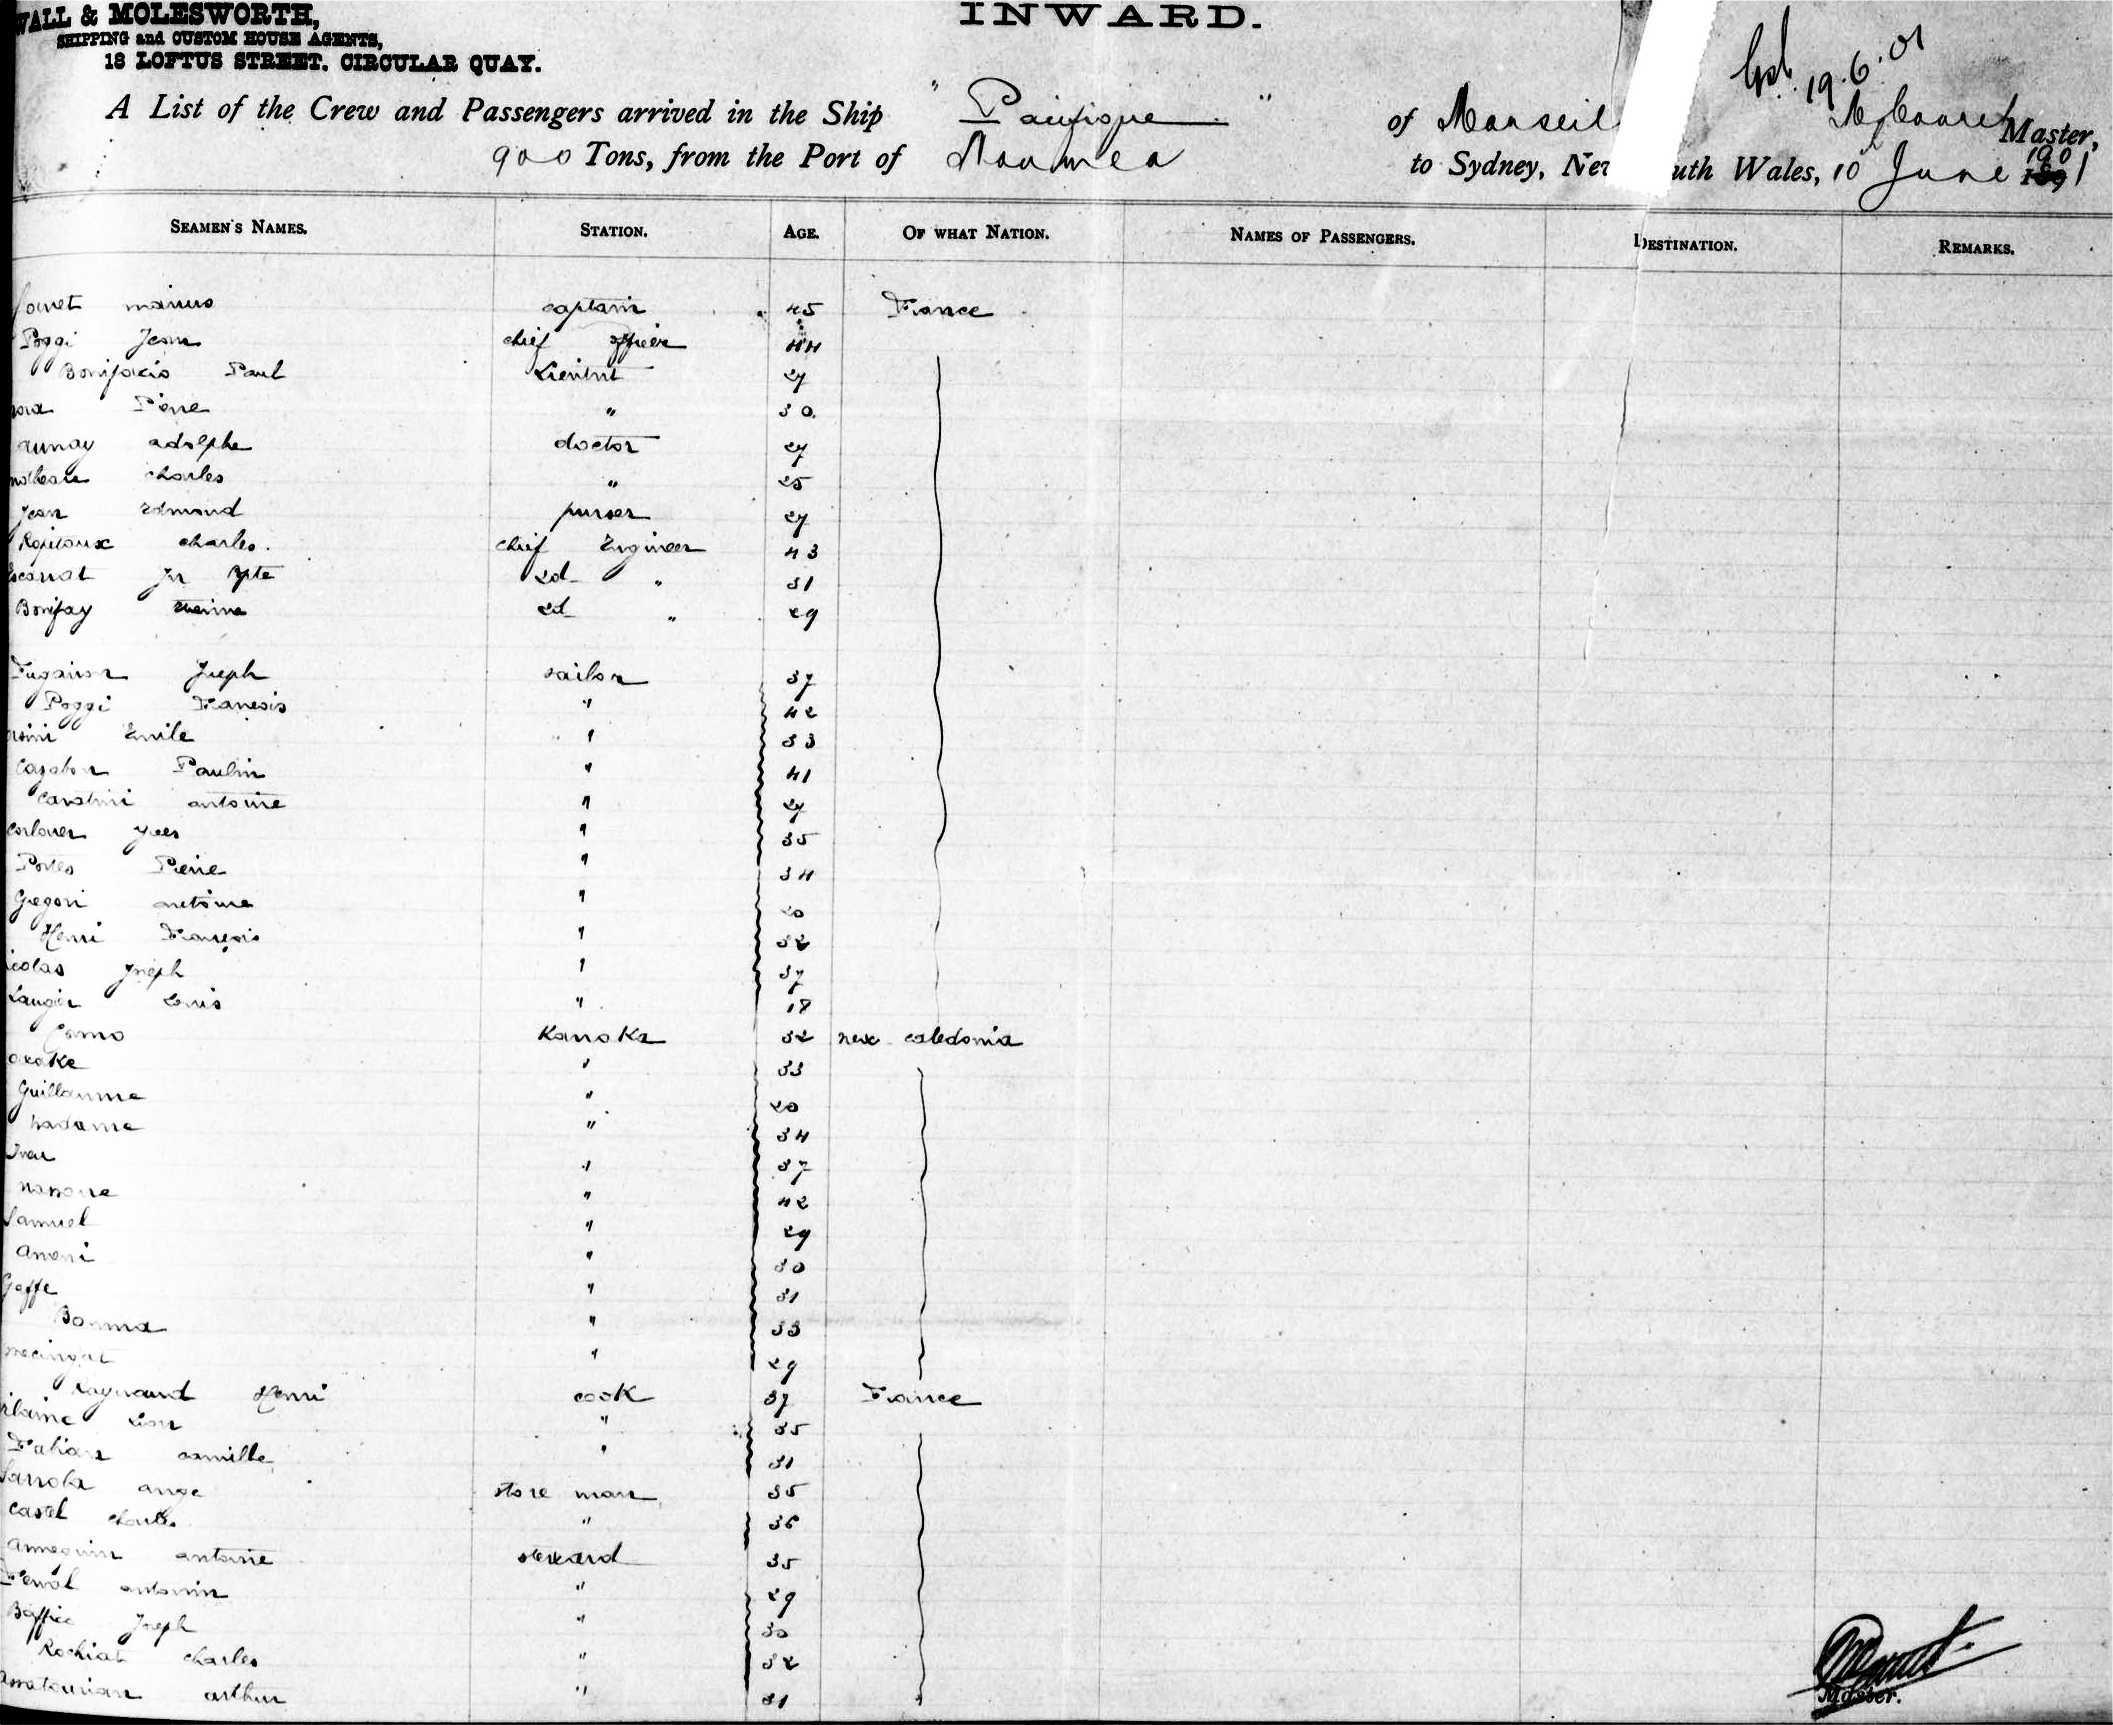 WALL & MOLESWORTH,
SHIPPING and CUSTOM HOUSE AGENTS,
18 LOFTUS STREET. CIRCULAR QUAY.
INWARD.
19.6.01
A List of the Crew and Passengers arrived in the Ship " Pacifique " of Marseil Master,
900 Tons, from the Port of Noumea to Sydney, New South Wales, 10 June 1901
SEAMEN'S NAMES. STATION. AGE. OF WHAT NATION. NAMES OF PASSENGERS. DESTINATION. REMARKS.
marius captain 45 France
Poggi Jean chief officer 44
Bonifacio Paul Lieutnt 27
Pierre " 30
aunay adolphe doctor 27
charles " 25
Jean Edmond purser 27
charles. chief Engineer 43
Jn Bpte 2d " 31
Bonifay 2d " 29
Joseph sailor 37
Poggi Francois " 42
Emile " 33
Cazabon Paulin " 41
antoine " 27
Yves " 35
Portes Pierre " 34
Gregori antoine " 20
Henri François " 32
icolas Joseph " 37
Laugier Louis " 18
Como Kanaka 32 new caledonia
" 33
Guillaume " 20
Madame " 34
" 37
" 42
Samuel " 29
" 30
Goffe " 31
Bouma " 33
" 29
Raynaud Henri cook 37 France
Leon " 35
camille " 31
Sarrola ange store man 35
Castel charles " 36
annequin antoine steward 35
antonin " 29
Joseph " 30
Rochiat charles " 32
arthur " 31
Master.